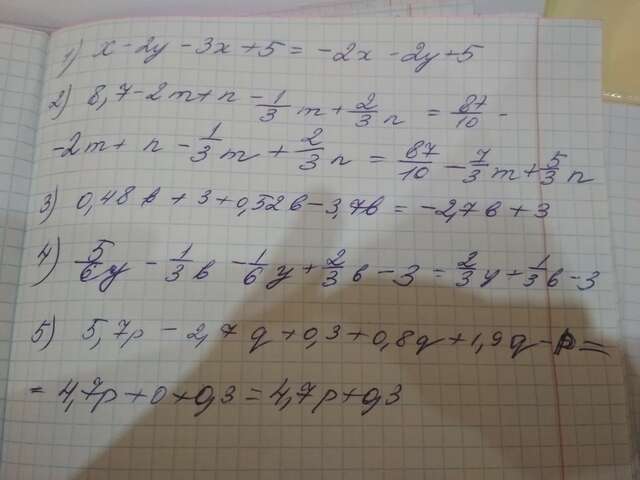 1) x - 2y - 3x + 5 = -2x - 2y + 5
2) 8,7 - 2m + n - 1/3 m + 2/3 n = 87/10 -
- 2m + n - 1/3 m + 2/3 n = 87/10 - 7/3 m + 5/3 n
3) 0,48в + 3 + 0,52в - 3,7в = -2,7в + 3
4) 5/6 y - 1/3 в - 1/6 y + 2/3 в - 3 = 2/3 y + 1/3 в - 3
5) 5,7p - 2,7q + 0,3 + 0,8q + 1,9q - p =
= 4,7p + 0 + 0,3 = 4,7p + 0,3